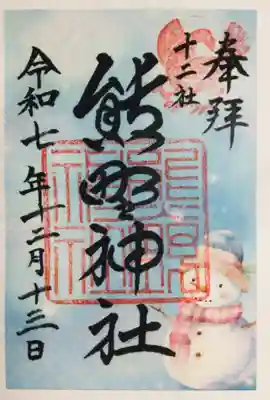 奉拝
十二社
熊野神社
令和七年十二月十三日